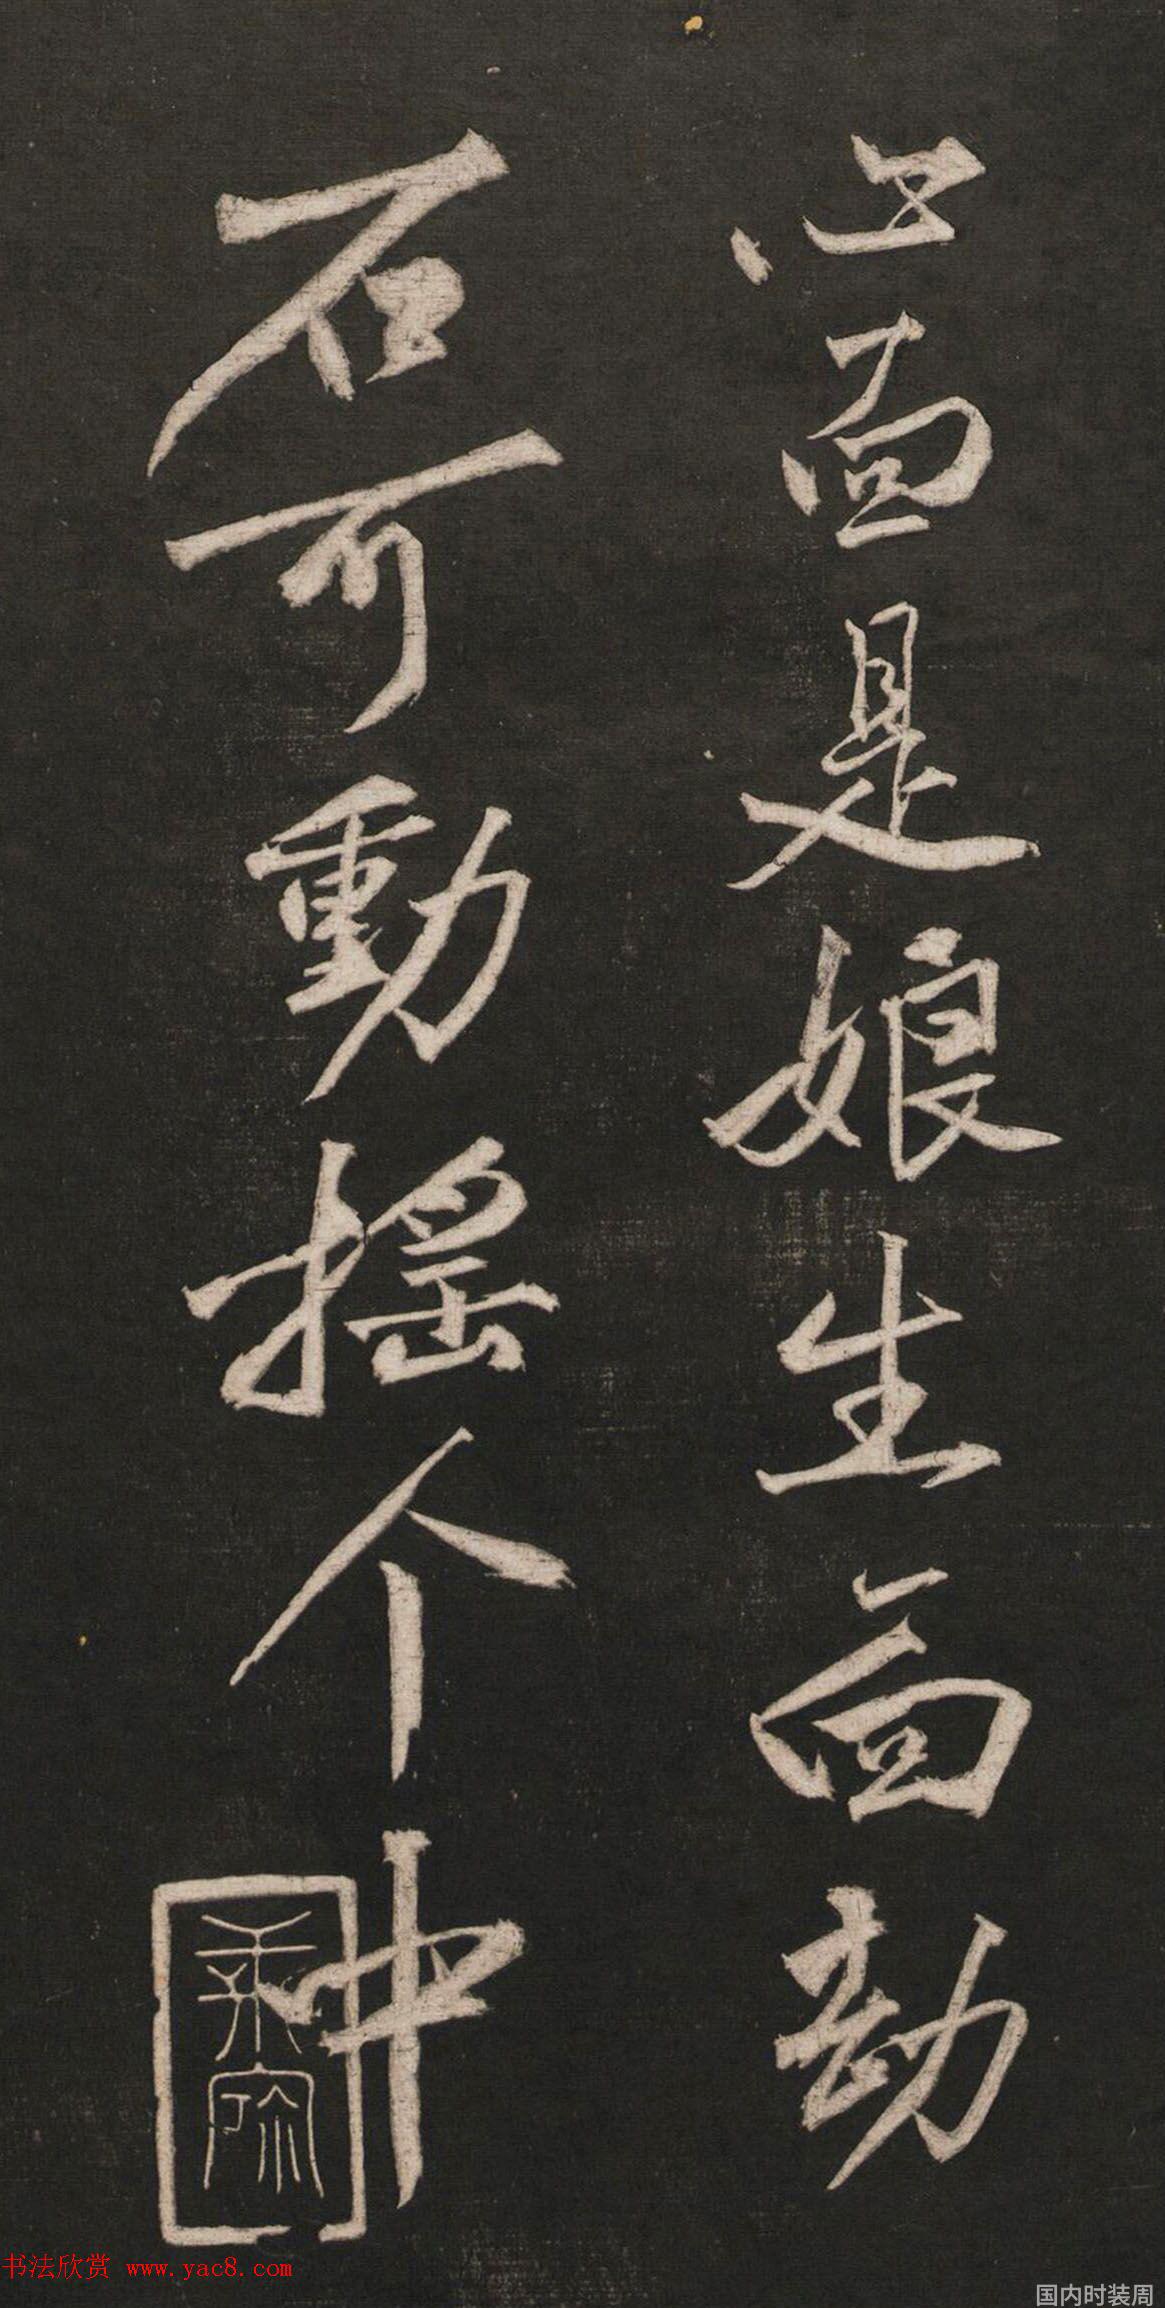 心面是娘生面劫
石可動摇个中
书法欣赏 www.yac8.com
国内时装周